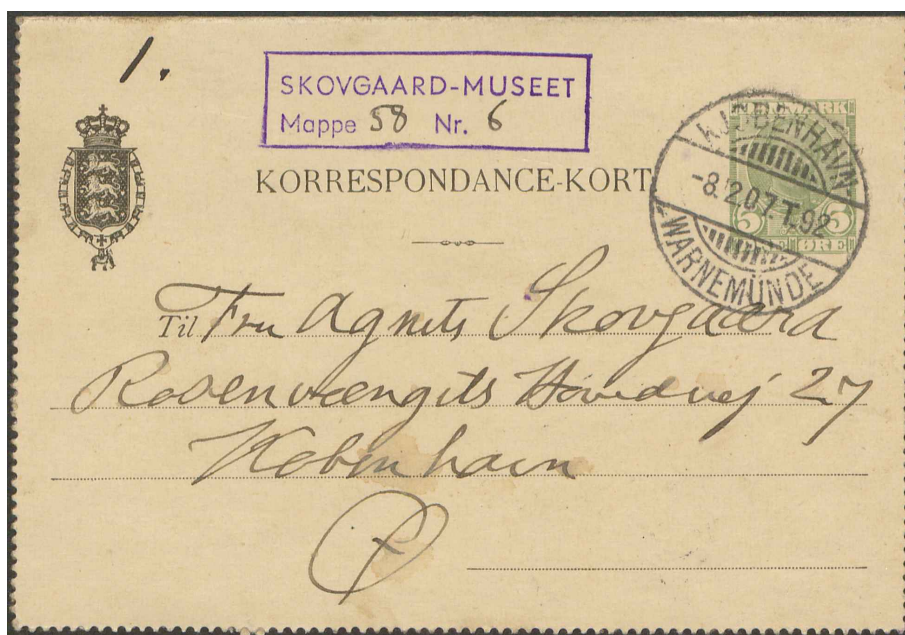 1.
SKOVGAARD-MUSEET
Mappe 58 Nr. 6
KORRESPONDANCE-KORT
DANMARK
5 ØRE 5
KJØBENHAVN
-8.2.07 T.92
WARNEMÜNDE
Til Fru Agnete Skovgaard
Rosenvængets Hovedvej 27
København
Ø